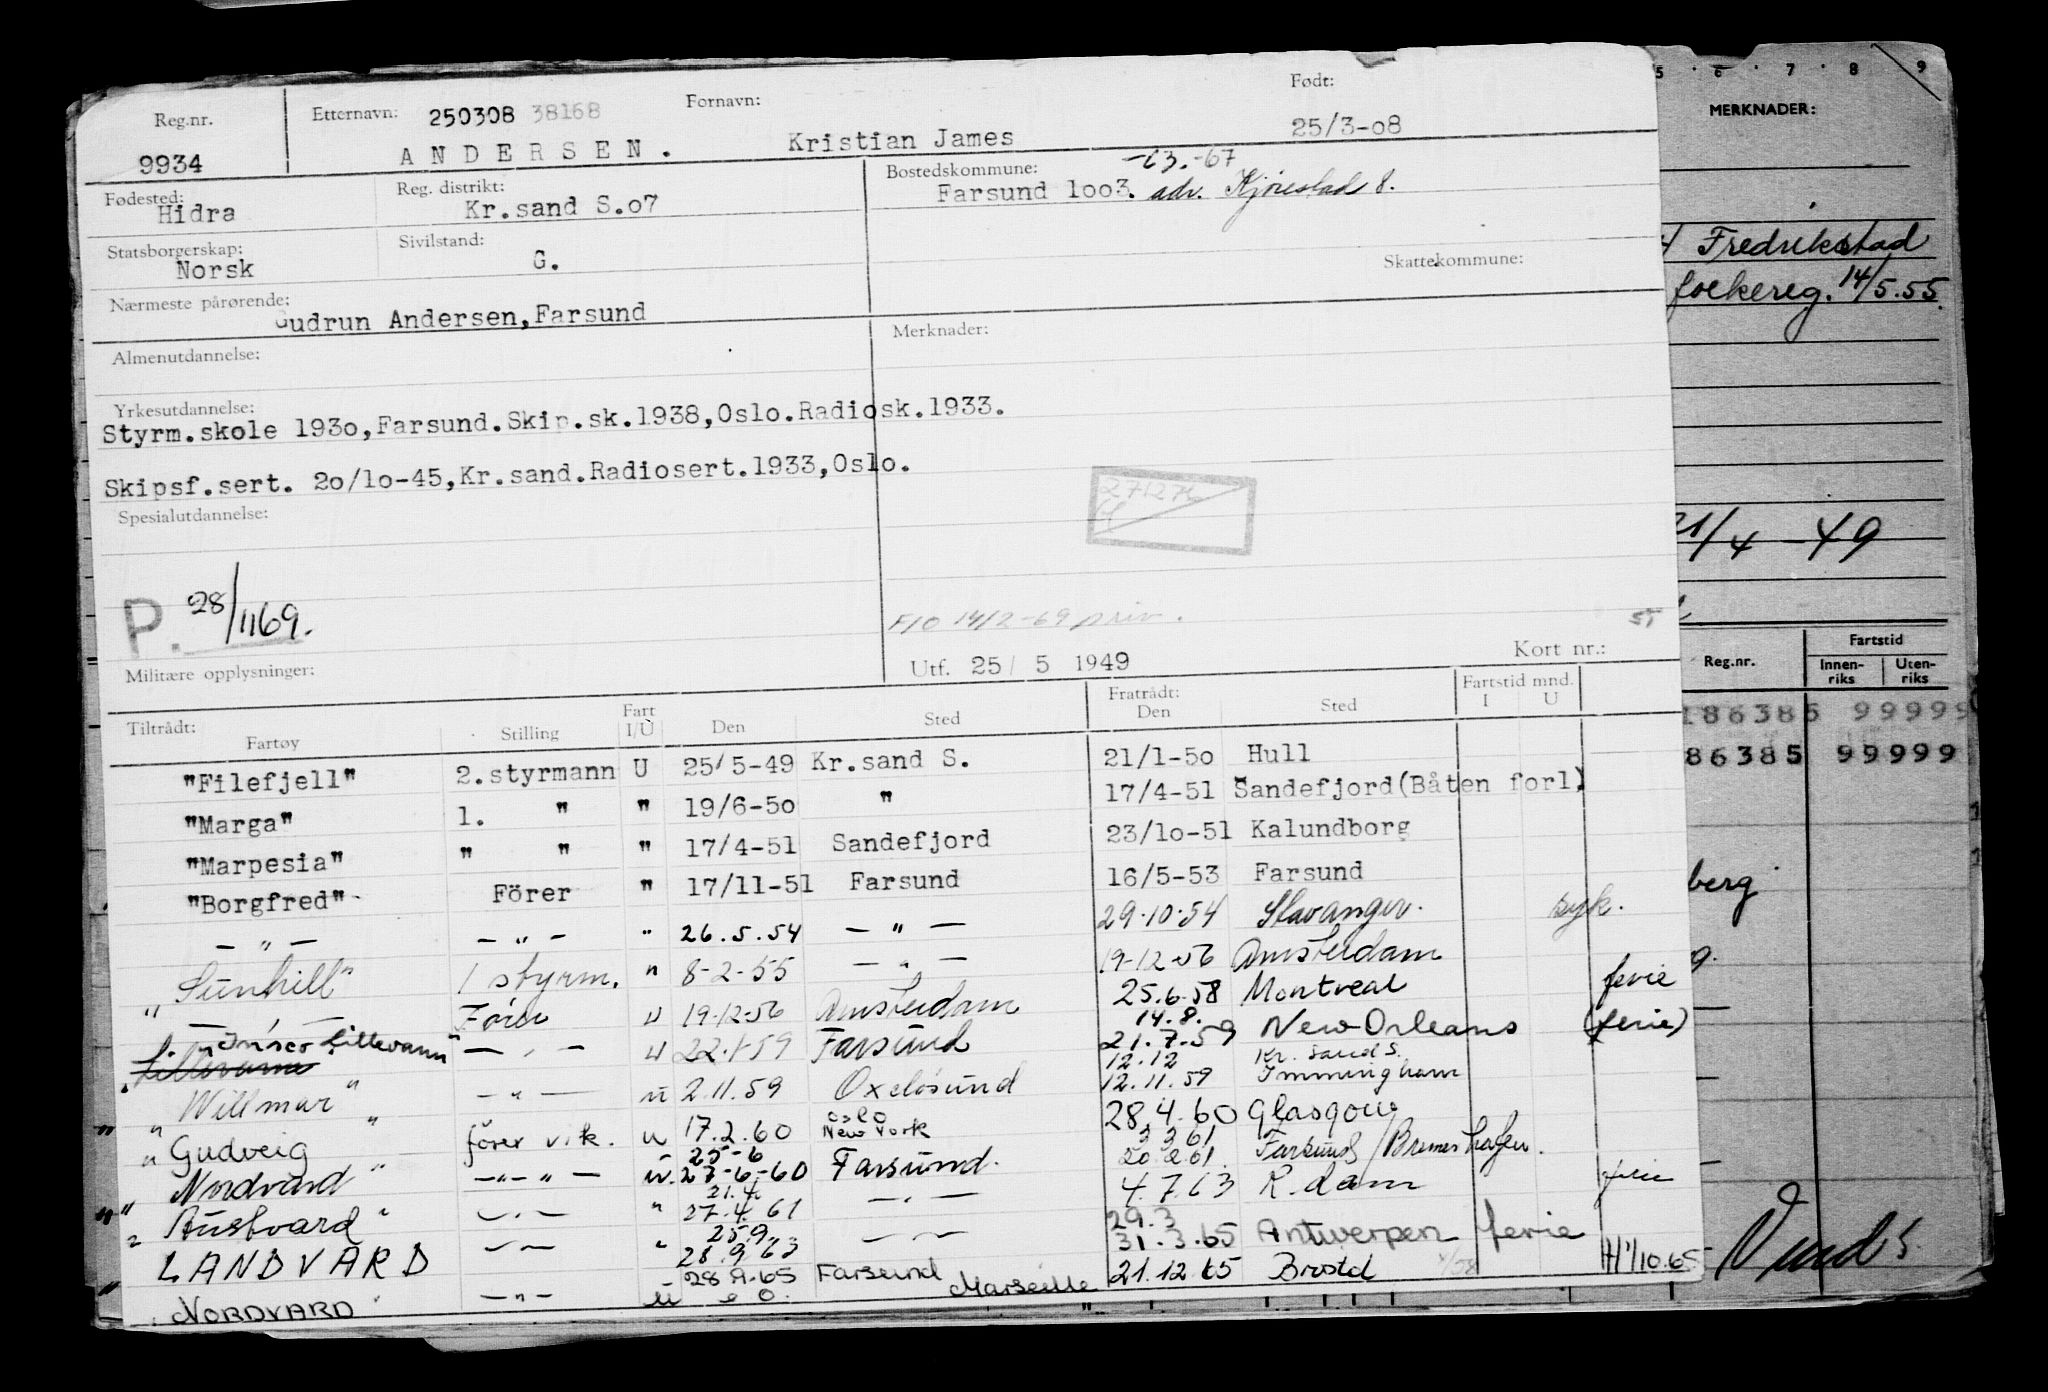 Reg.nr. Etternavn: 250308 38168 Fornavn: Født:
9934 ANDERSEN. Kristian James 25/3-08
Fødested: Hidra Reg. distrikt: Kr.sand S.o7 Bostedskommune: Farsund 1oo3. adr.
Statsborgerskap: Norsk Sivilstand: G. Skattekommune:
Nærmeste pårørende: Gudrun Andersen,Farsund Merknader:
Almenutdannelse:
Yrkesutdannelse:
Styrm.skole 193o,Farsund.Skip.sk.1938,Oslo.Radiosk.1933.
Skipsf.sert. 2o/1o-45,Kr.sand.Radiosert.1933,Oslo.
Spesialutdannelse:
P. 28/1169.
F/O 14/2-69 priv.
Militære opplysninger: Utf. 25/ 5 1949 Kort nr.:
Tiltrådt: Fratrådt: Fartstid mnd.
Fartøy Stilling Fart I/U Den Sted Den Sted I U
"Filefjell" 2.styrmann U 25/5-49 Kr.sand S. 21/1-5o Hull
"Marga" 1. " " 19/6-5o " 17/4-51 Sandefjord(Båten forl)
"Marpesia" " " " 17/4-51 Sandefjord 23/1o-51 Kalundborg
"Borgfred" Förer " 17/11-51 Farsund 16/5-53 Farsund
— " — — " — " 26.5.54 — " — 29.10.54 Stavanger. syk.
"Sunhill" 1 styrm. " 8-2-55 — " — 19-12-56 Amsterdam
— " — Förer u 19-12-56 Amsterdam 25.6.58 Montreal ferie
Lillevann — " — u Farsund 14.8. 21.7.59 New Orleans (ferie)
"Willmar" — " — u 2.11.59 Oxelösund 12.12 12.11.59 Kr. Sand S. Immingham
"Gudveig" förer vik. u 17.2.60 Oslo New York 28.4.60 Glasgow
"Nordvard" — " — " — u. 25-6 27-6-60 Farsund. 3 3 61 20.2.61. Farsund/Bremerhafen.
"Austvard" — " — " 21.4. 27.4.61 — " — 4.7.63 R.dam ferie
"LANDVARD — " — " 25.9. 28.9.63 — " — 29.3 31.3.65 Antwerpen ferie
"NORDVARD" — " — u 28.9.65 Farsund Marseille 21.12.65 H 1/10.65
5 6 7 8 9
MERKNADER:
Fredrikstad
folkereg. 14/5.55.
21/4-49
Reg.nr. Fartstid
Innen-riks Uten-riks
186385 99999
86385 99999
berg